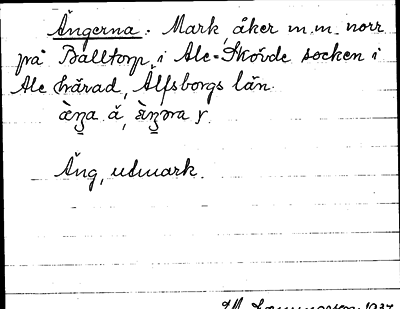 Ängerna. Mark, åker m.m. norr
på Balltorp, i Ale-Skövde socken i
Ale härad, Älfsborgs län.
Äng, utmark.
1937